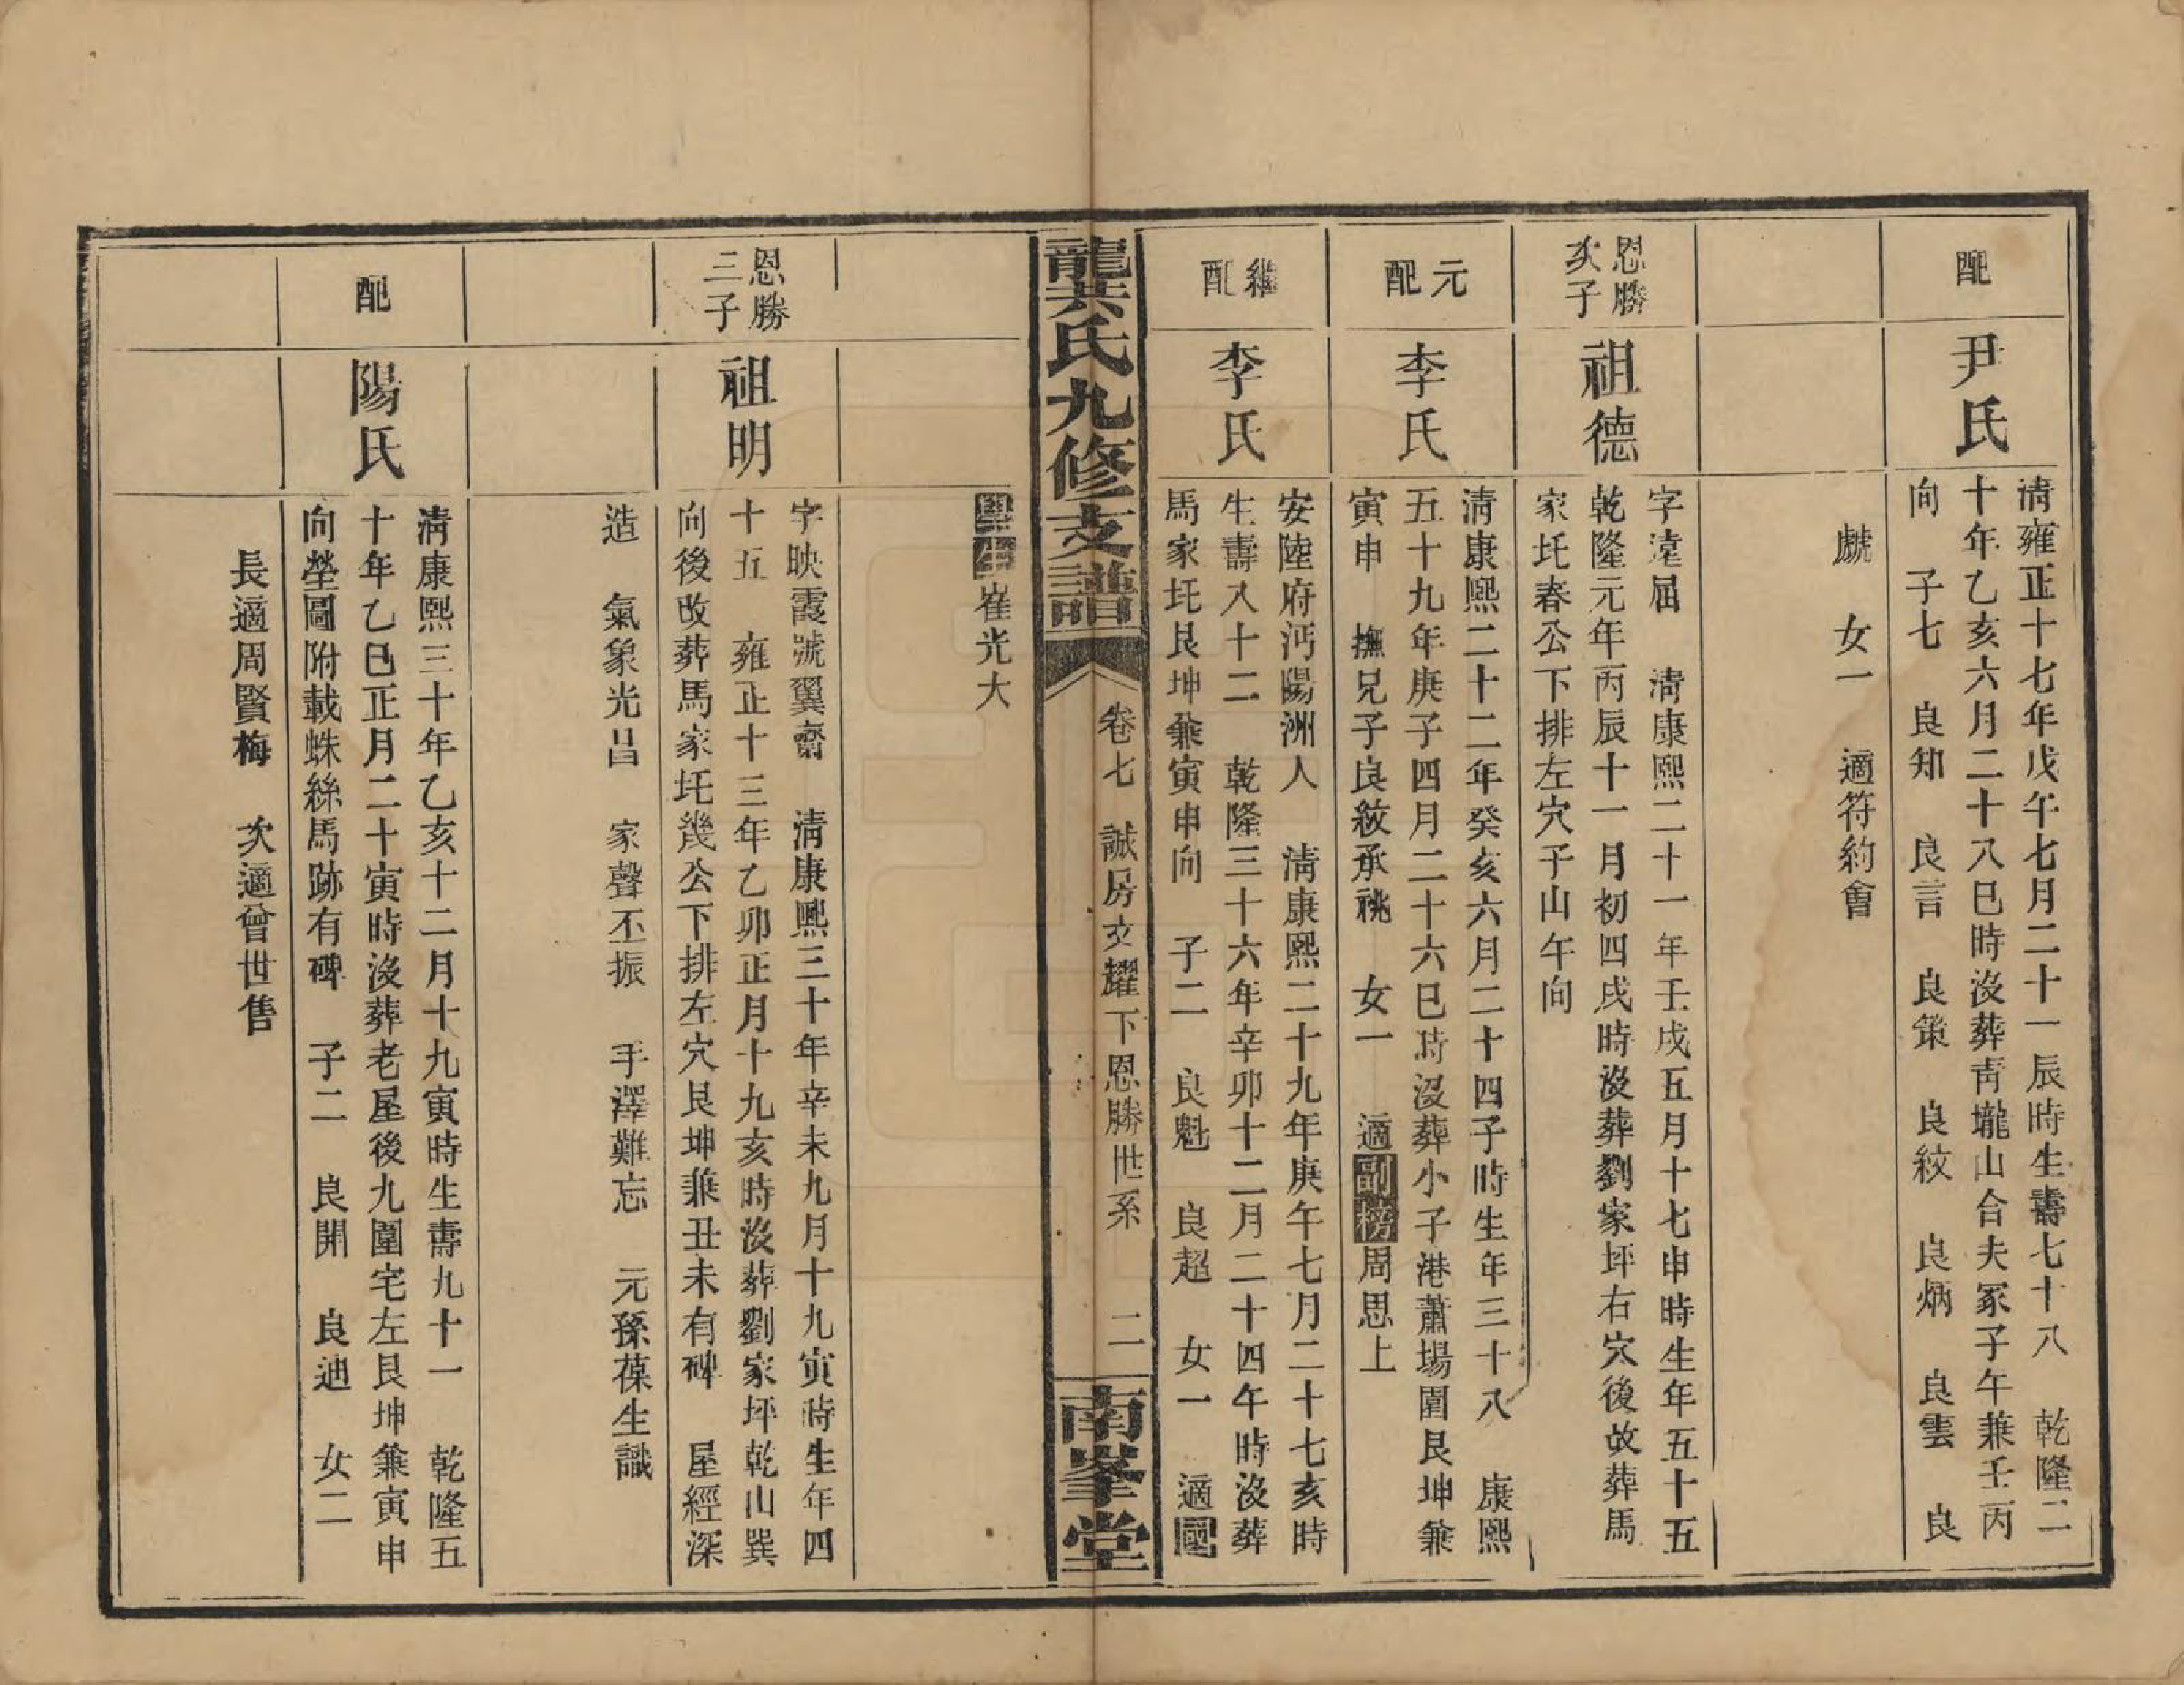 配
尹氏
清雍正十七年戊午七月二十一辰時生壽七十八　乾隆二
十年乙亥六月二十八巳時沒葬青壠山合夫冢子午兼壬丙
向　子七　良知　良言　良策　良紋　良炳　良雲　良
虤　女一　適符約會
恩勝
次子
祖德
字遠届　清康熙二十一年壬戌五月十七申時生年五十五
乾隆元年丙辰十一月初四戌時沒葬劉家坪右穴後改葬馬
家圫春公下排左穴子山午向
元配
李氏
清康熙二十二年癸亥六月二十四子時生年三十八　康熙
五十九年庚子四月二十六巳時沒葬小子港蕭場圍艮坤兼
寅申　撫兄子良紋承祧　女一　適副榜周思上
繼配
李氏
安陸府沔陽洲人　清康熙二十九年庚午七月二十七亥時
生壽八十二　乾隆三十六年辛卯十二月二十四午時沒葬
馬家圫艮坤兼寅申向　子二　良魁　良超　女一　適國
龔氏九修支譜
卷七　誠房文耀下恩勝世系　二
南峯堂
學生崔光大
恩勝
三子
祖明
字映霞號翼齋　清康熙三十年辛未九月十九寅時生年四
十五　雍正十三年乙卯正月十九亥時沒葬劉家坪乾山巽
向後改葬馬家圫幾公下排左穴艮坤兼丑未有碑　屋經深
造　氣象光昌　家聲丕振　手澤難忘　元孫葆生識
配
陽氏
清康熙三十年乙亥十二月十九寅時生壽九十一　乾隆五
十年乙巳正月二十寅時沒葬老屋後九圍宅左艮坤兼寅申
向塋圖附載蛛絲馬跡有碑　子二　良開　良迪　女二
長適周賢梅　次適曾世售